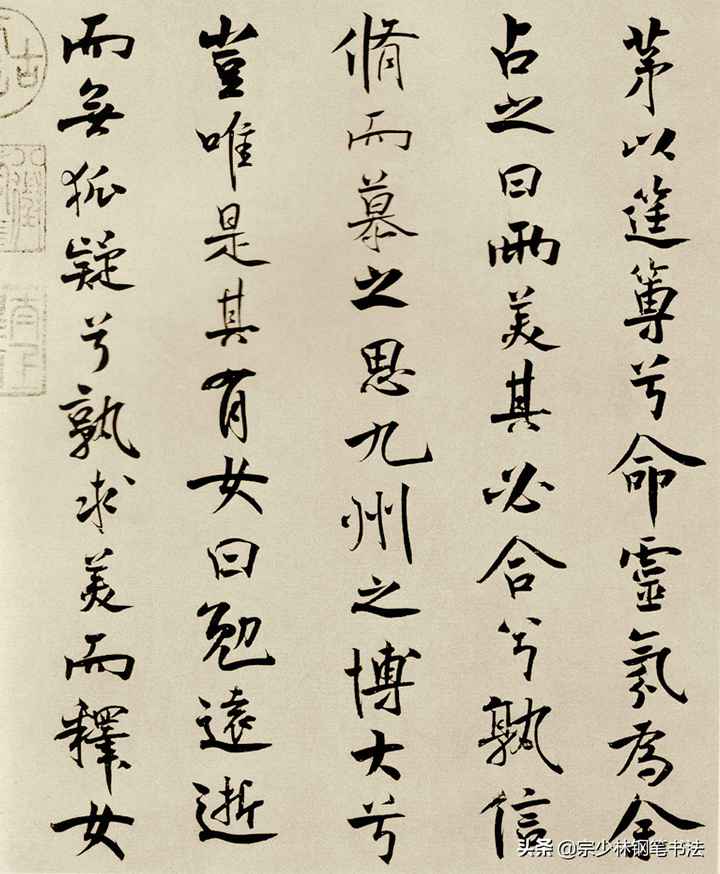 茅以筳篿兮命靈氛為余
占之曰兩美其必合兮孰信
脩而慕之思九州之博大兮
豈唯是其有女曰勉遠逝
而無狐疑兮孰求美而釋女
头条 @宗少林钢笔书法